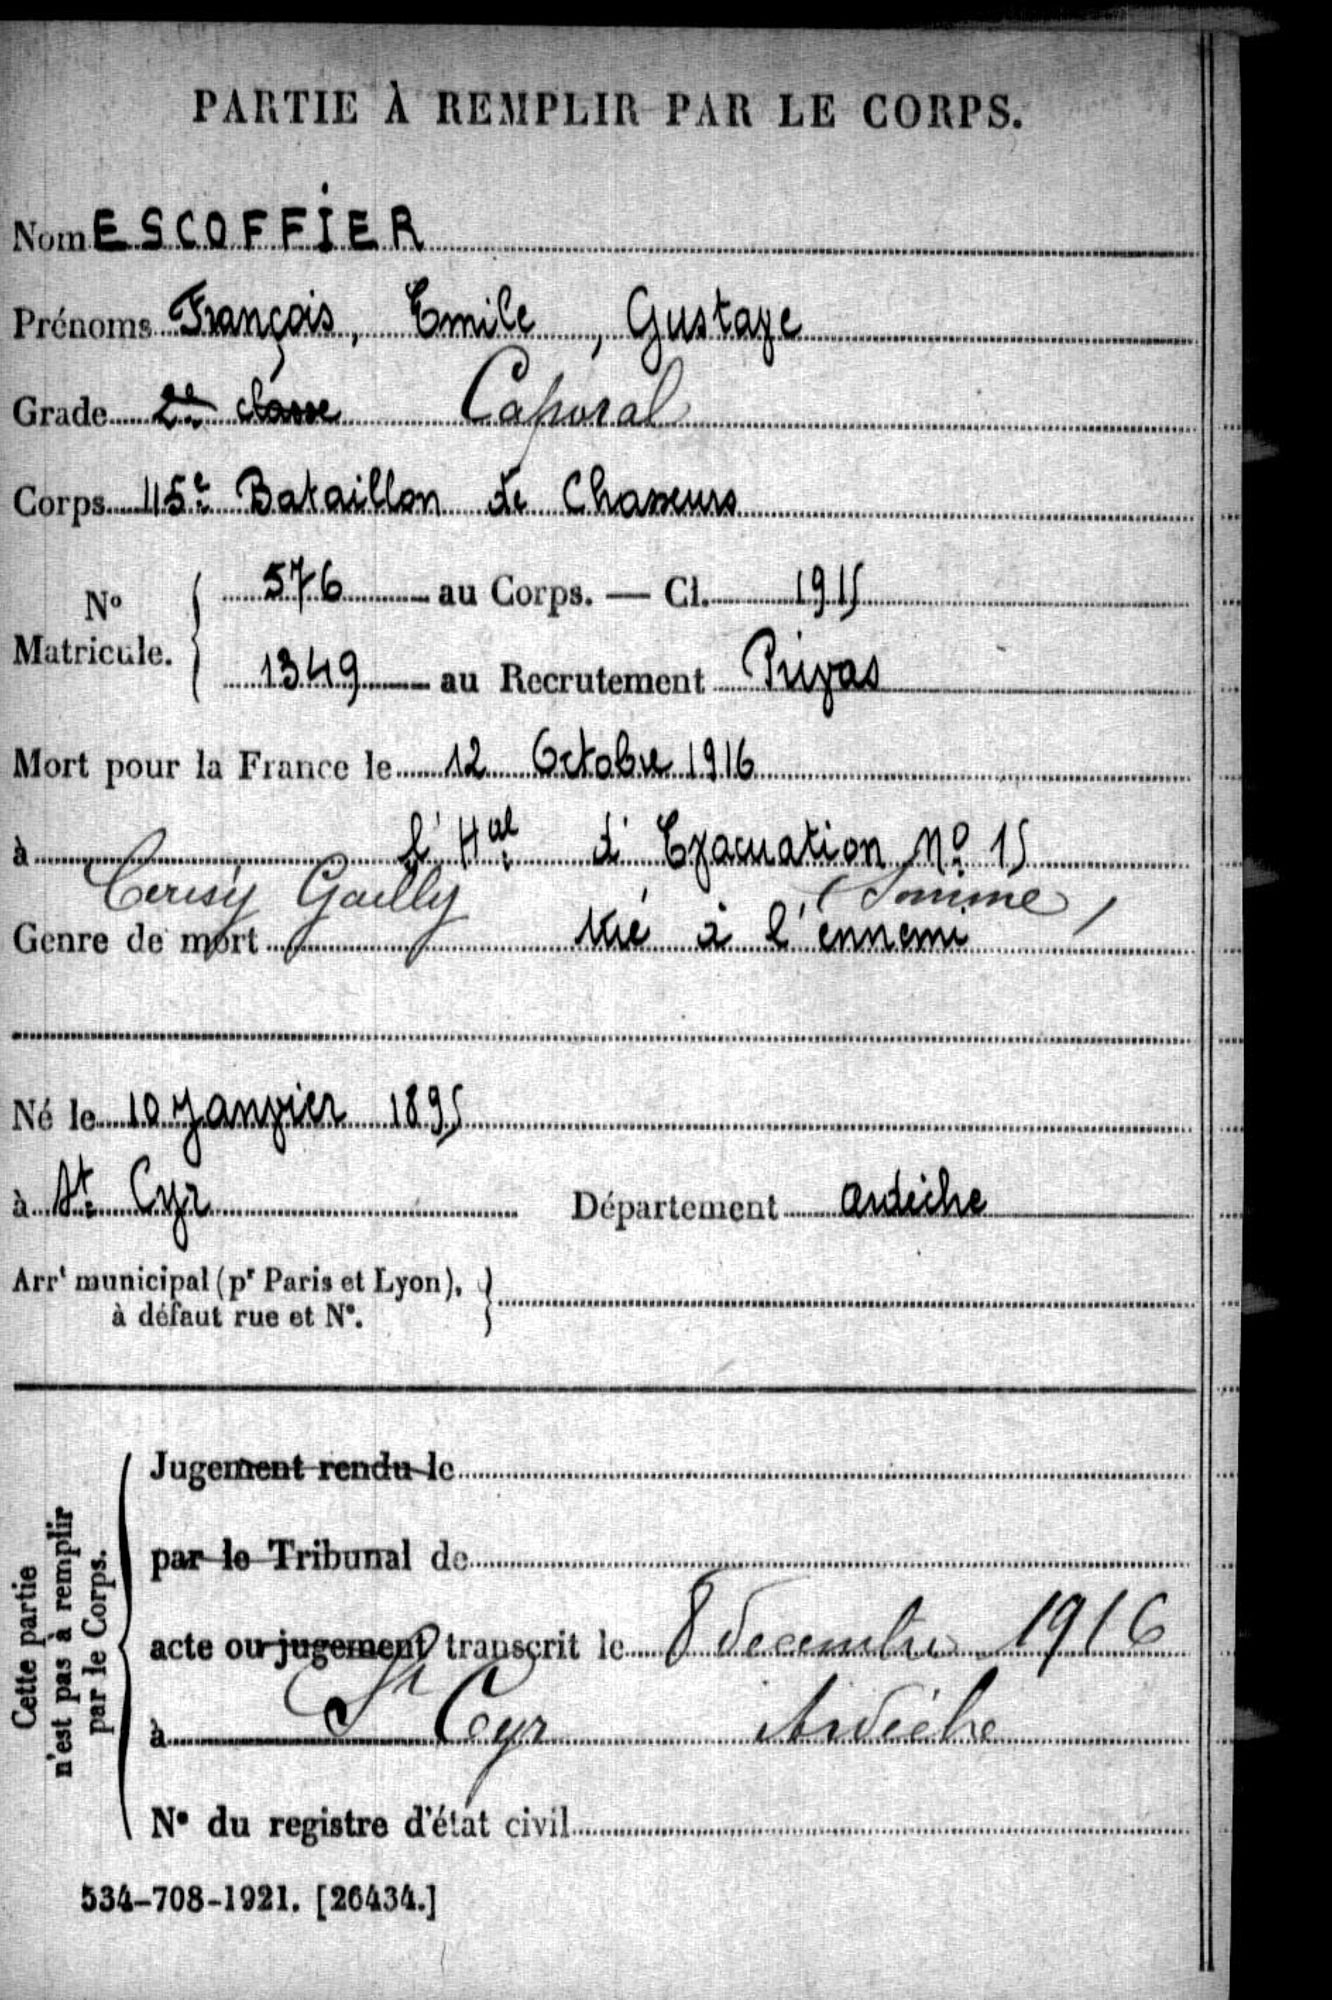 PARTIE À REMPLIR PAR LE CORPS.
Nom ESCOFFIER
Prénoms François, Emile, Gustave
Grade 2e classe Caporal
Corps 45e Bataillon de Chasseurs
No Matricule. { 576 au Corps. — Cl. 1915
1349 au Recrutement Privas
Mort pour la France le 12 Octobre 1916
à l'Hal d'Evacuation No 15
Cerisy Gailly (Somme)
Genre de mort tué à l'ennemi
Né le 10 Janvier 1895
à St Cyr Département Ardèche
Arrt municipal (pr Paris et Lyon), }
à défaut rue et No.
Cette partie
n'est pas à remplir
par le Corps.
Jugement rendu le
par le Tribunal de
acte ou jugement transcrit le 8 décembre 1916
à St Cyr Ardèche
No du registre d'état civil
534-708-1921. [26434.]